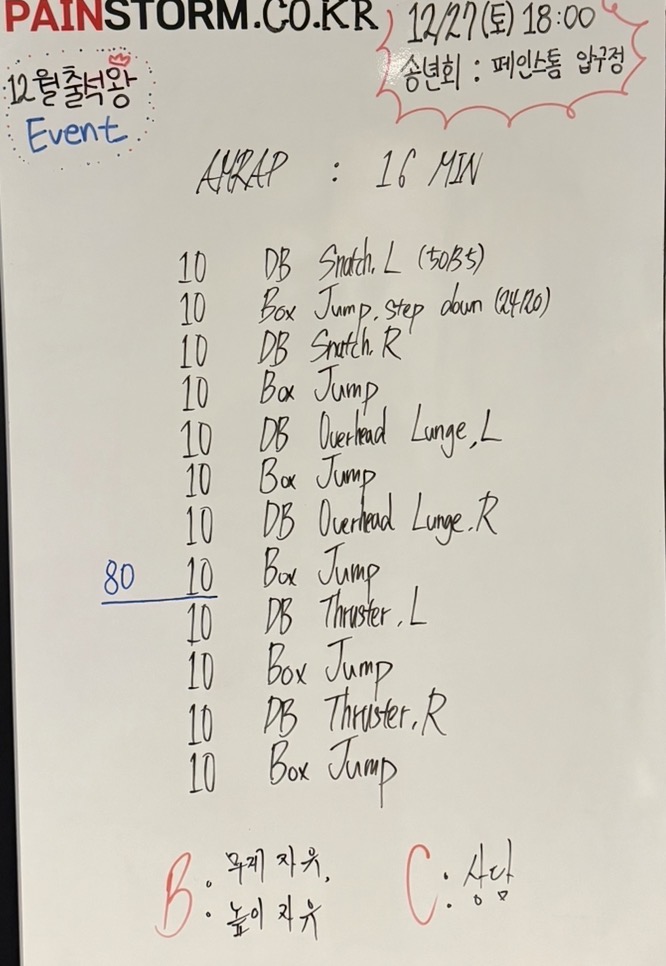 PAINSTORM.CO.KR
12/27(토) 18:00
송년회 : 페인스톰 압구정
12월 출석왕
Event
AMRAP : 16 MIN
10 DB Snatch, L (50/35)
10 Box Jump, step down (24/20)
10 DB Snatch, R
10 Box Jump
10 DB Overhead Lunge, L
10 Box Jump
10 DB Overhead Lunge, R
80 10 Box Jump
10 DB Thruster, L
10 Box Jump
10 DB Thruster, R
10 Box Jump
B : 무게 자유,
높이 자유
C : 상담